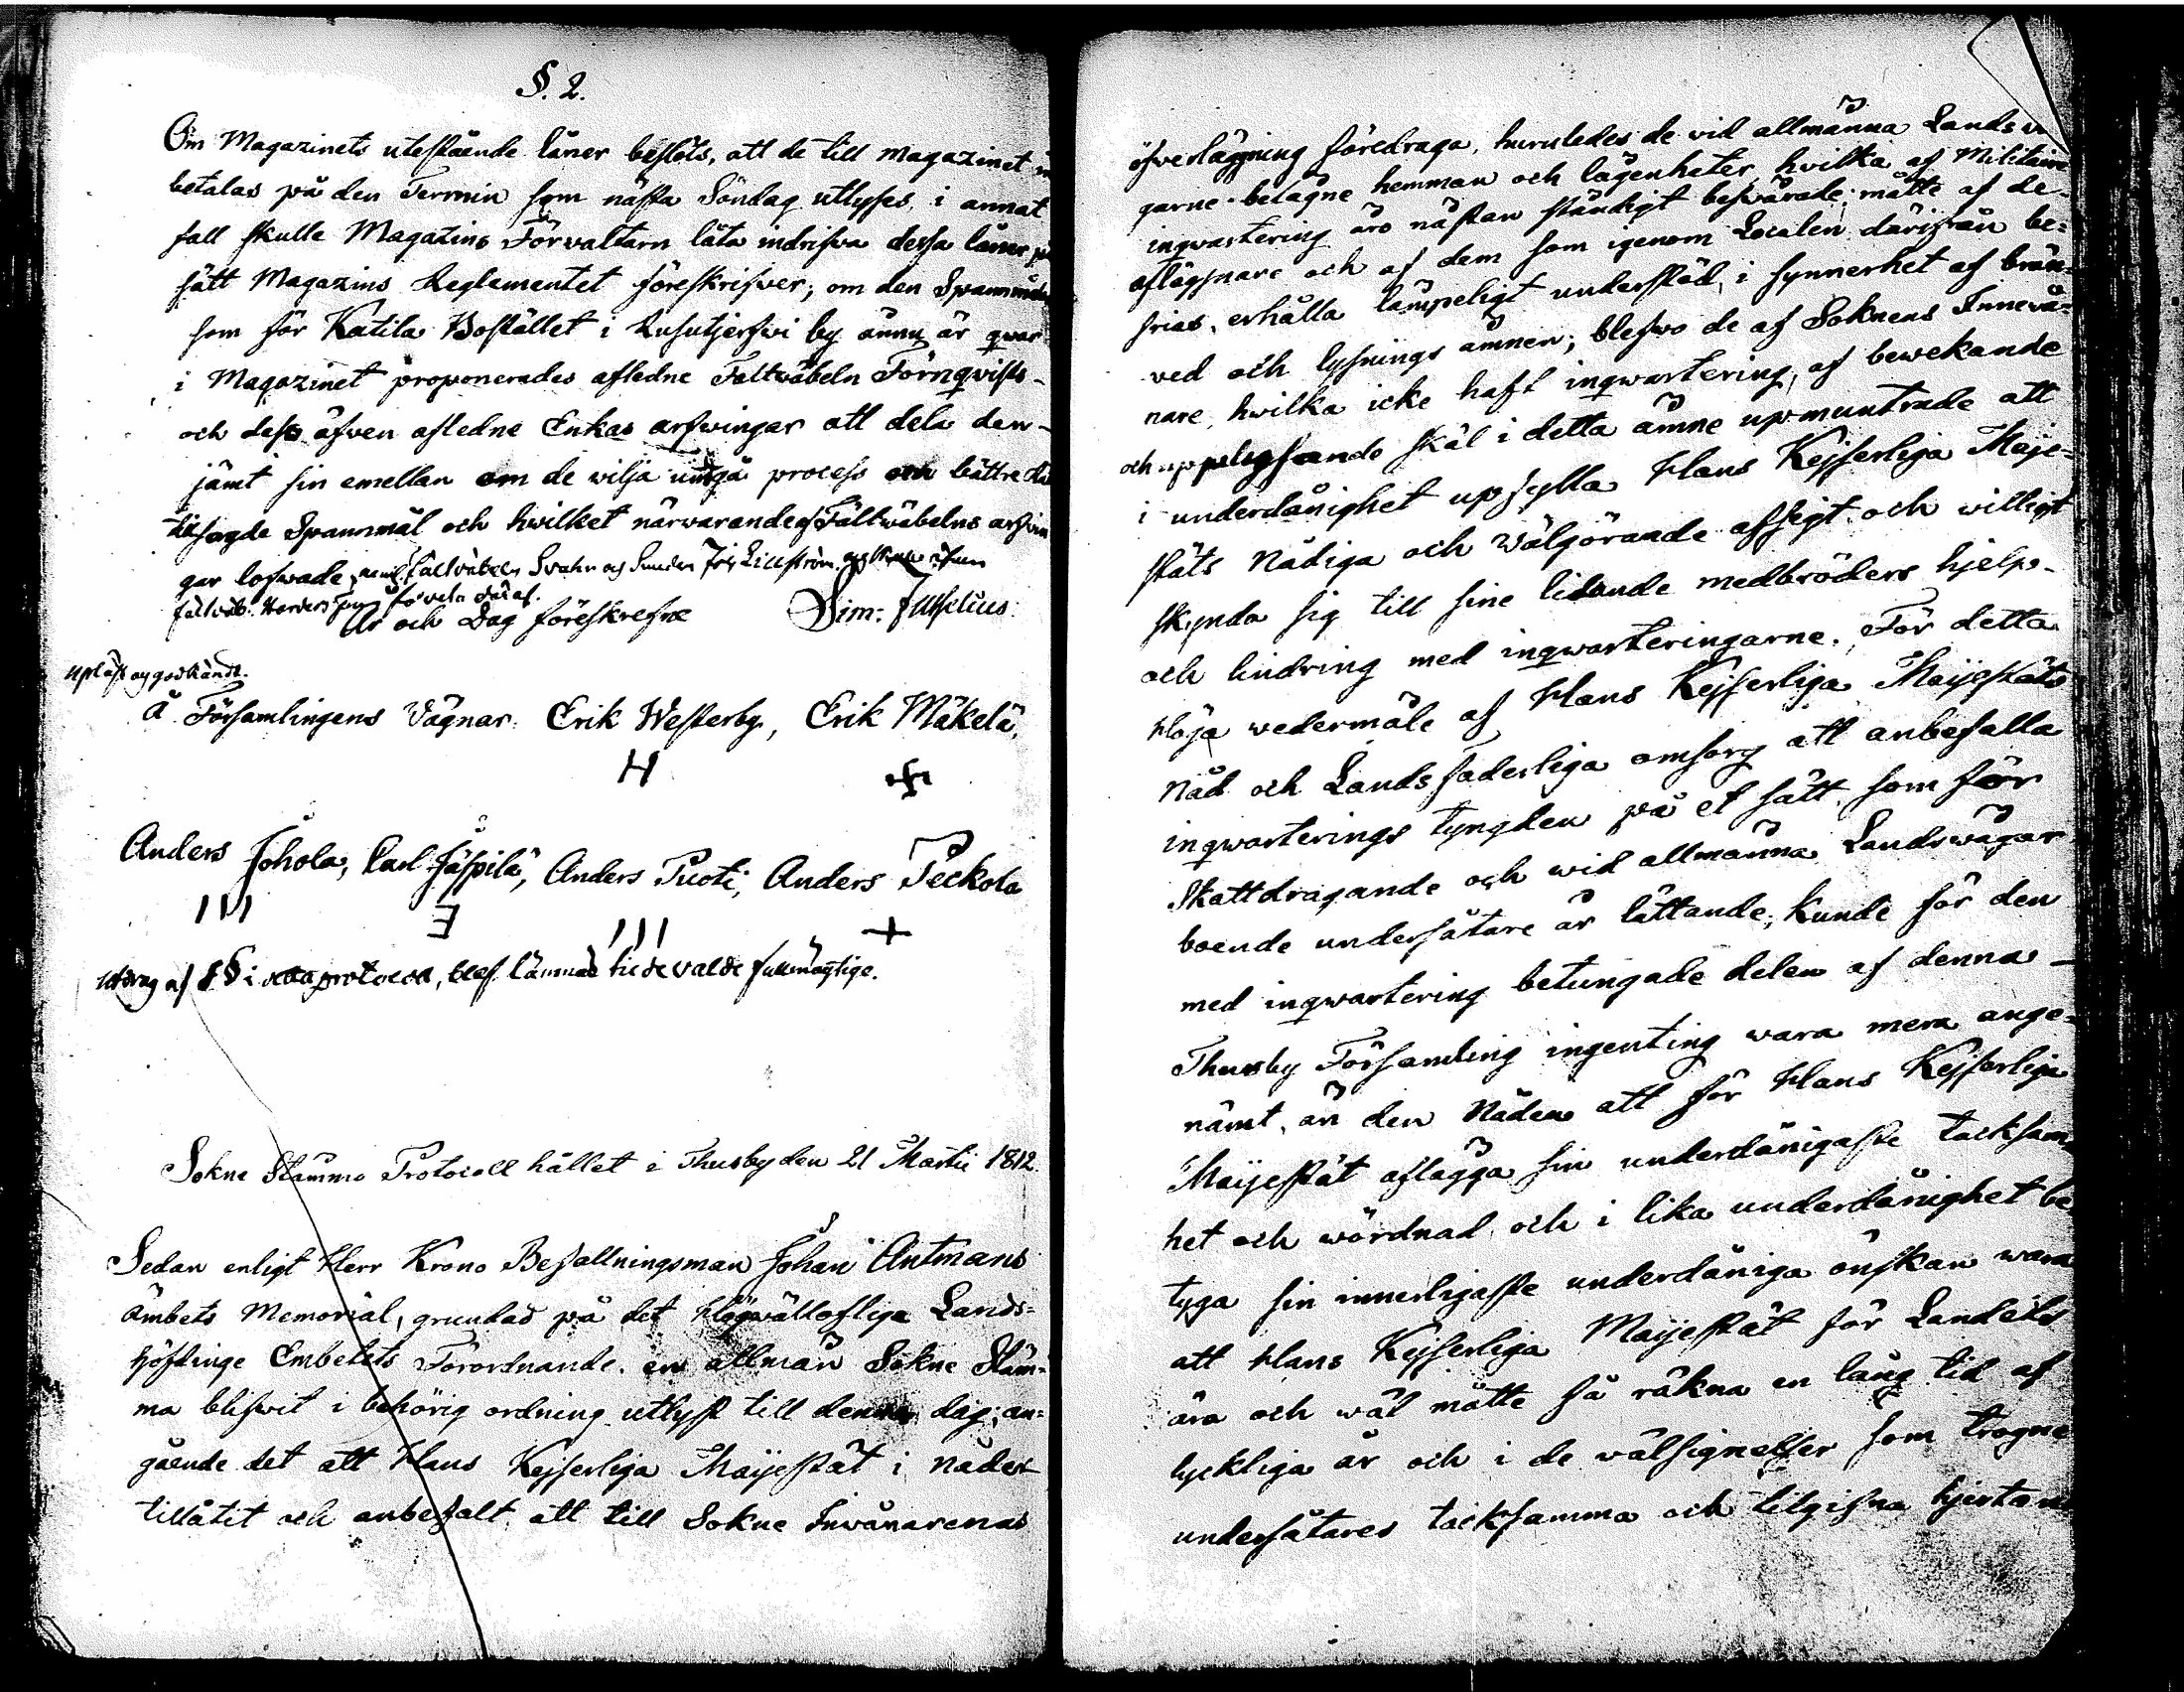 §. 2.
Om Magazinets utestående låner beslöts, att de till magazinet
betalas på den Termin som nästa Söndag utlyses, i annat
fall skulle Magazins Förvaltarn låta indrifva dessa låner på
sätt Magazins Reglementet föreskrifver; om den Spannmåln
som för Katila Bostället i Rusutjerfvi by ännu är qwar
i Magazinet proponerades afledne Faltwäbeln Törnqvists
och dess äfven afledne Enkas arfwingar att dela den
jämt sin emellan om de wilja undgå process och bättre
till sagde Spannmål och hwilket närwarande af Fältwäbelns arfvin
gar lofwade, neml. Faltväbeln Svahn og
År och Dag föreskrefne Sim: Juselius.
upläst og godkändt.
å Församlingens Vägnar. Erik Westerby, Erik Mäkelä,
Anders Johola, Carl Jäspilä, Anders Tuoti, Anders Peckola
utdrag af 1§ i detta protocoll, blef lämnad til de valde fullmägtige.
Sokne Stämmo Protocoll hållet i Thusby den 21 Martii 1812.
Sedan enligt Herr Krono Befallningsman Johan Antmans
ämbets Memorial, grundad på det Högwällofliga Lands=
höfdinge Embetets Förordnande. en allmän Sokne Stäm=
ma blifwit i behörig ordning utlyst till denna dag; an=
gående det att Hans Kejserliga Maijestät i nåder
tillåtit och anbefalt att till Sokne Invånarenas
öfverläggning föredraga, huruledes de vid allmänna Lands vä
garne belägne hemman och lägenheter, hvilka af Militaire
inqwartering äro nästan ständigt beswärade; måtte af de
aflägsnare och af dem som igenom Localen därifrån be=
frias, erhålla lämpeligt understöd, i synnerhet af brän=
ved och lysnings ämnen; blefwo de af Soknens Innevå=
nare, hwilka icke haft inqwartering, af bewekande
och upplysande skäl i detta ämne upmuntrade att
i underdånighet upfylla Hans Kejserliga Maije=
stäts Nådiga och Wälgörande afsigt och willigt
skynda sig till sine lidande medbröders hjelp
och lindring med inqwarteringarne. För detta
Höga wedermäle af Hans Kejserliga Maijestäts
Nåd och Landsfaderliga omsorg att anbefalla
inqwarterings tyngden på et sätt, som för
Skattdragande och wid allmänna Landswägar
boende undersåtare är lättande, kunde för den
med inqwartering betungade delen af denna
Thusby Församling ingenting wara mera ange=
nämt, än den Nåden att för Hans Kejserliga
Maijestät aflägga sin underdånigaste tacksam
het och wördnad och i lika underdånighet be
tyga sin innerligaste underdåniga önskan wara
att Hans Kejserliga Maijestät för Landets
ära och wäl måtte få räkna en lång tid af
lyckliga år och i de wälsignelser som trogne
undersåtares tacksamma och tilgifna hjertan